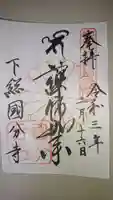 奉拝
令和三年
二月十六日
薬師如来
下総國分寺